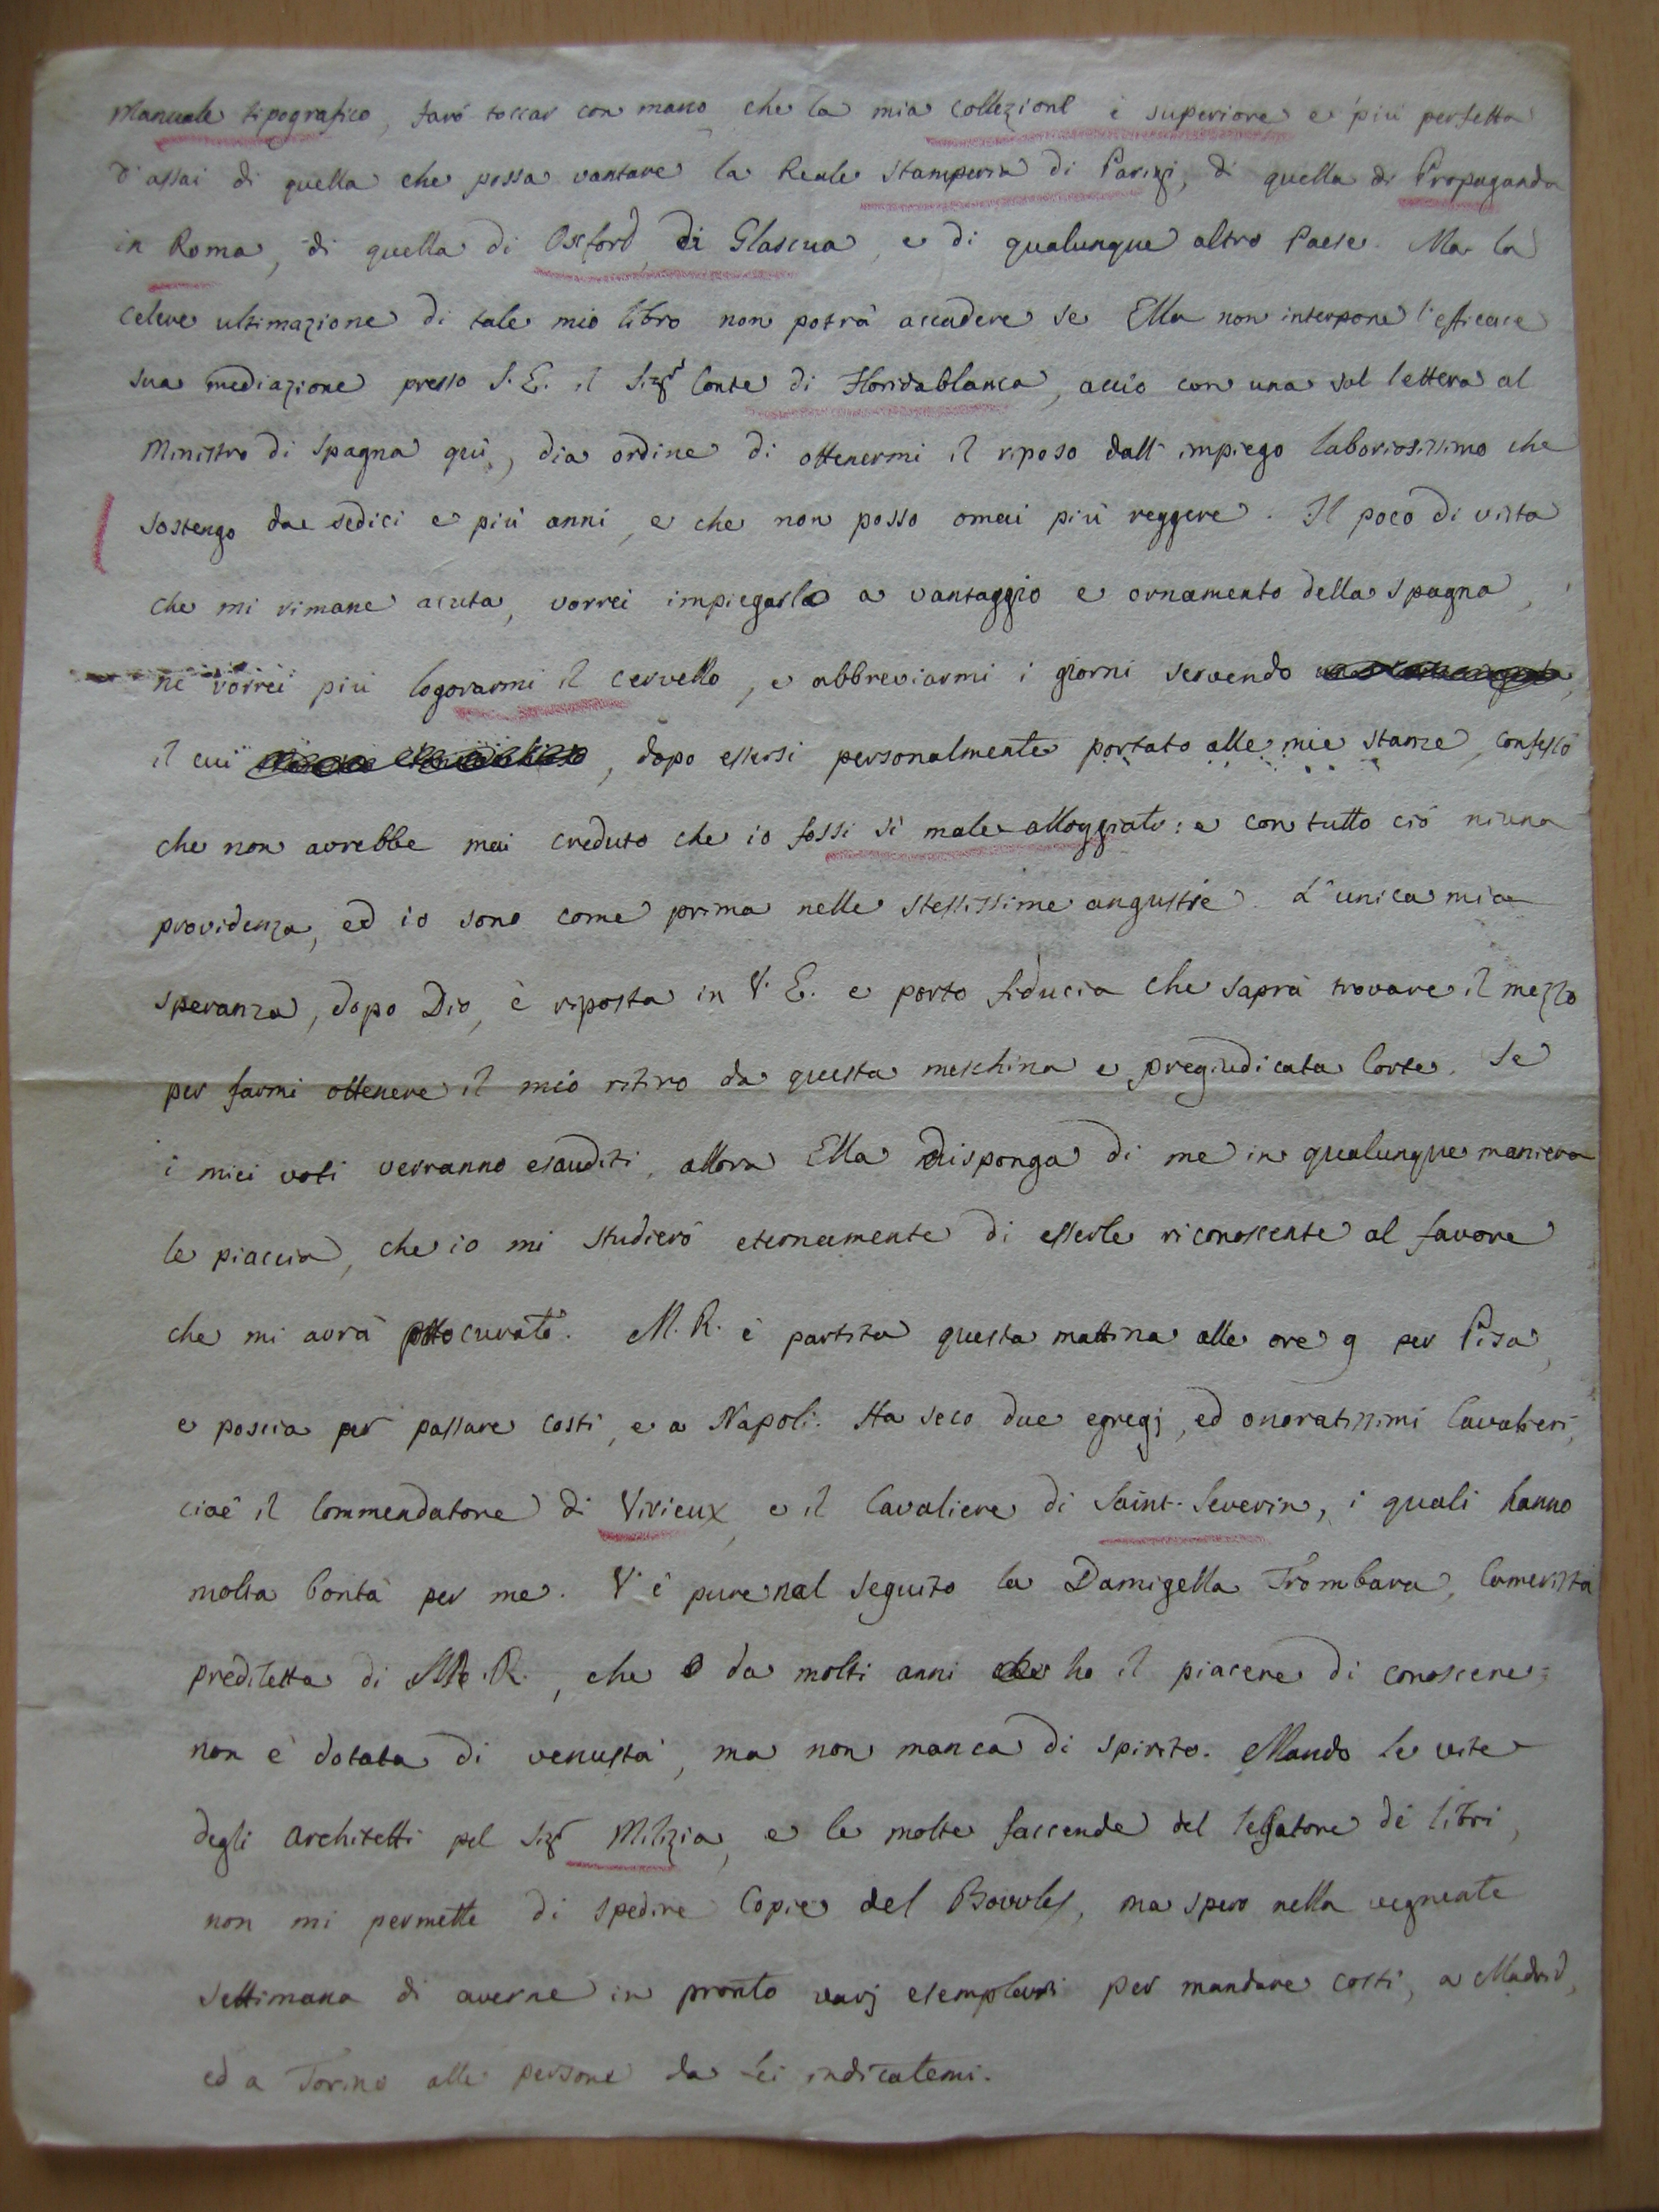 Manuale tipografico, farò toccar con mano, che la mia collezione è superiore e più perfetta
d'assai di quella che possa vantare la Reale Stamperia di Parigi, di quella di Propaganda
in Roma, di quella di Oxford, di Glascua, e di qualunque altro Paese. Ma la
celere ultimazione di tale mio libro non potrà accadere se Ella non interpone l'efficace
sua mediazione presso S. E. il Sigr Conte di Floridablanca, acciò con una sol lettera al
Ministro di Spagna quì, dia ordine di ottenermi il riposo dall' impiego laboriosissimo che
sostengo da sedici e più anni, e che non posso omai più reggere. Il poco di vista
che mi rimane acuta, vorrei impiegarlo a vantaggio e ornamento della Spagna,
nè vorrei più logorarmi il cervello, e abbreviarmi i giorni servendo
il cui , dopo essersi personalmente portato alle mie stanze, confessò
che non avrebbe mai creduto che io fossi sì male alloggiato: e con tutto ciò niuna
providenza, ed io sono come prima nelle stessissime angustie. L'unica mia
speranza, dopo Dio, è riposta in V. E. e porto fiducia che saprà trovare il mezzo
per farmi ottenere il mio ritiro da questa meschina e pregiudicata Corte. Se
i miei voti verranno esauditi, allora Ella disponga di me in qualunque maniera
le piaccia, che io mi studierò eternamente di esserle riconoscente al favore
che mi avrà procurato. M. R. è partita questa mattina alle ore 9 per Pisa,
e poscia per passare costì, e a Napoli. Ha seco due egregj, ed onoratissimi Cavalieri,
cioè il Commendatore di Virieux, e il Cavaliere di Saint-Severin, i quali hanno
molta bontà per me. V'è pure nel seguito la Damigella Trombara, Camerista
prediletta di M. R., che da molti anni ho il piacere di conoscere:
non è dotata di venustà, ma non manca di spirito. Mando le vite
degli Architetti pel Sigr Milizia, e le molte faccende del legatore de' libri,
non mi permette di spedire Copie del Bowles, ma spero nella vegnente
settimana di averne in pronto varj esemplari per mandare costì, a Madrid,
ed a Torino alle persone da Lei indicatemi.